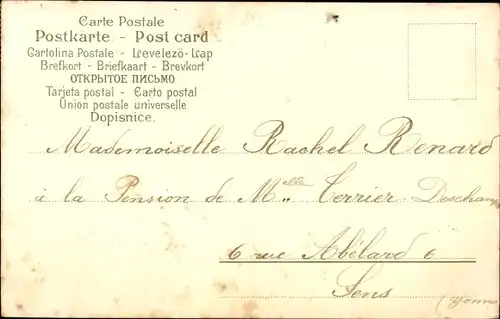 Carte Postale
Postkarte - Post card
Cartolina Postale - Levelezö-Lap
Brefkort - Briefkaart - Brevkort
ОТКРЫТОЕ ПИСЬМО
Tarjeta postal - Carto postal
Union postale universelle
Dopisnice.
Mademoiselle Rachel Renard
à la Pension de Melle Terrier-Deschamps
6 rue Abélard 6
Sens (Yonne)